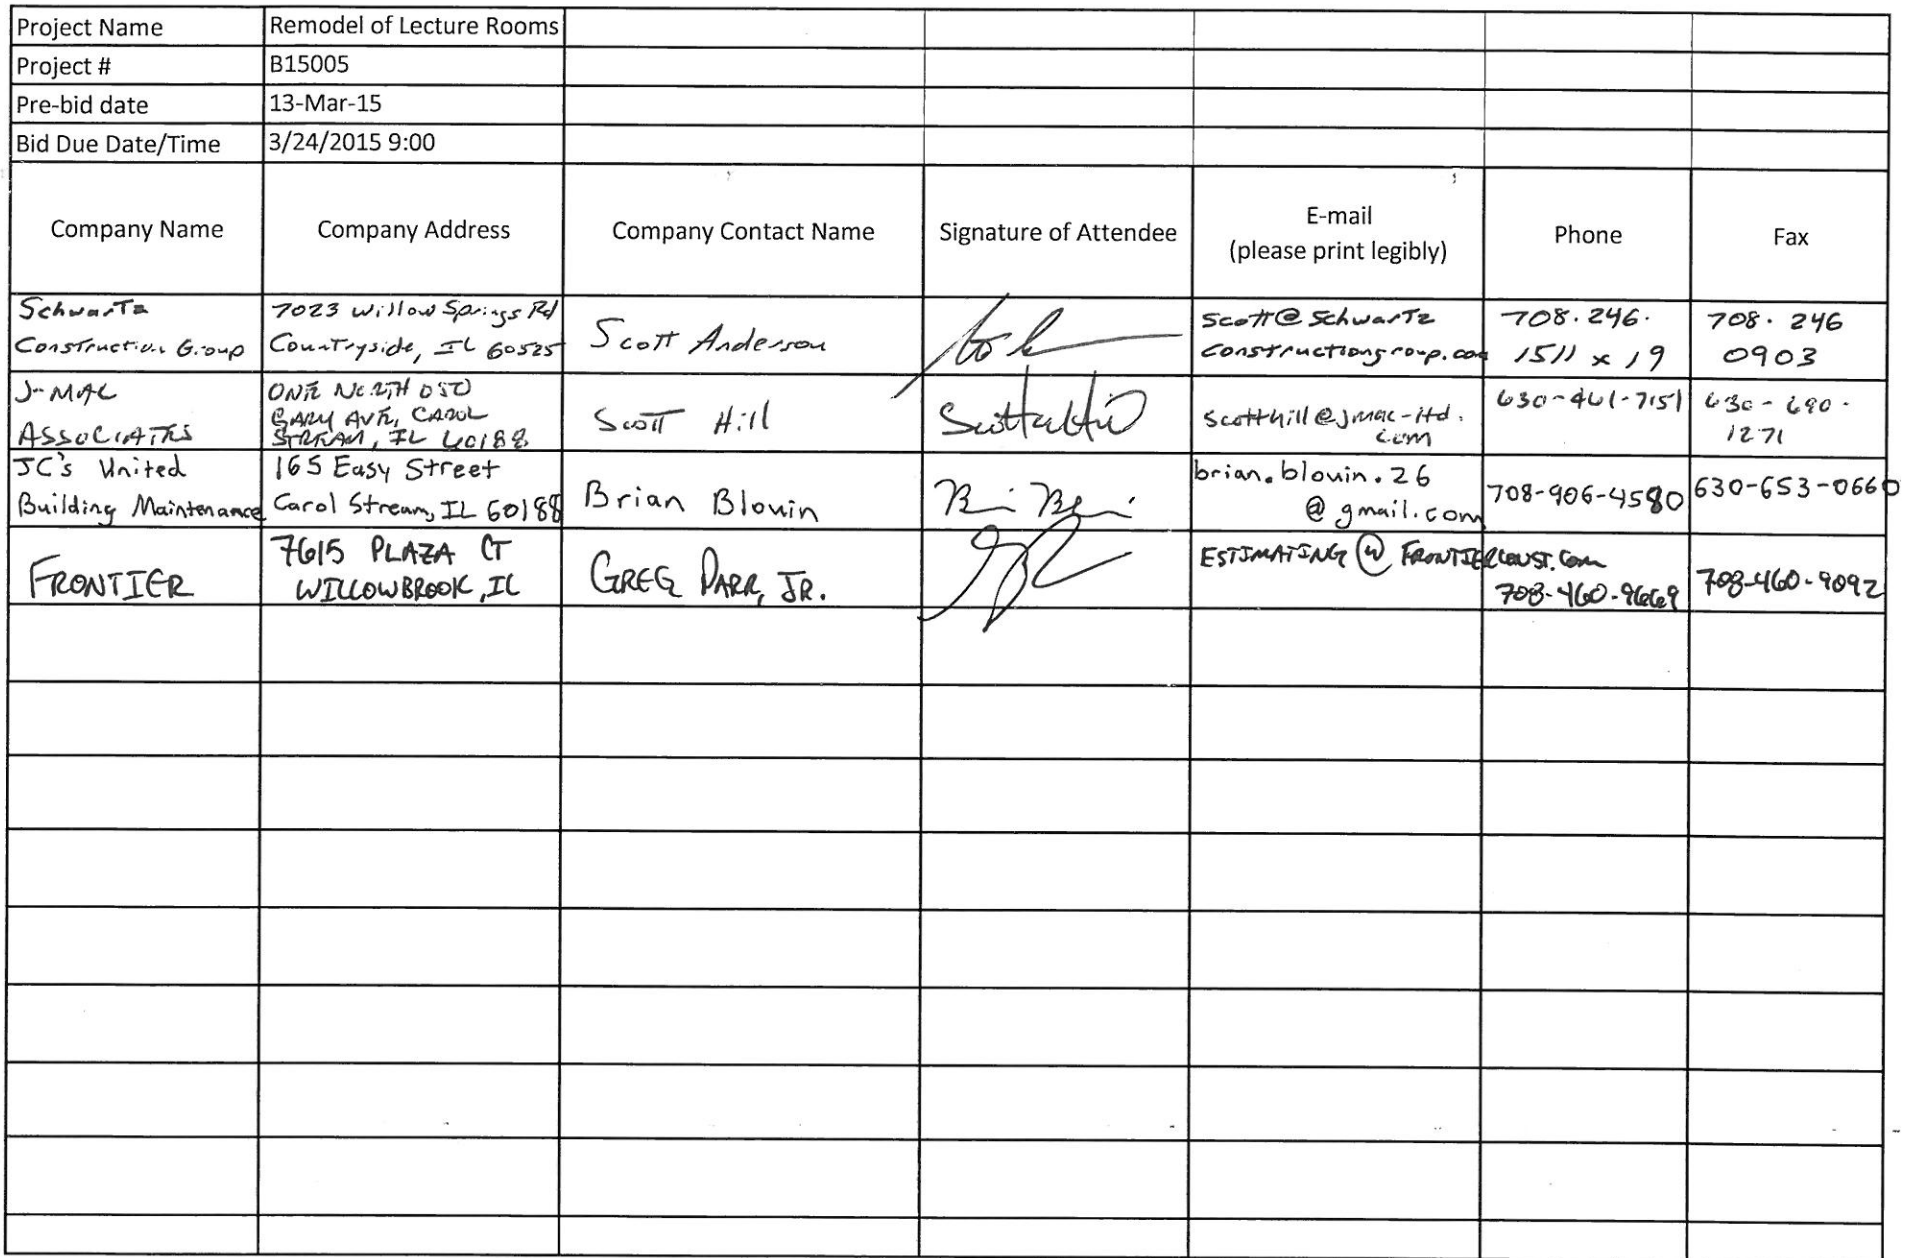 Project Name Remodel of Lecture Rooms
Project # B15005
Pre-bid date 13-Mar-15
Bid Due Date/Time 3/24/2015 9:00
Company Name Company Address Company Contact Name Signature of Attendee E-mail (please print legibly) Phone Fax
Schwartz
Construction Group
7023 Willow Springs Rd
Countryside, IL 60525
Scott Anderson
Scott@Schwartz
constructiongroup.com
708.246.
1511 x 19
708. 246
0903
J-MAC
ASSOCIATES
ONE NORTH 050
GARY AVE, CAROL
STREAM, IL 60188
Scott Hill
scotthill@jmac-ltd.
com
630-461-7151
630-690-
1271
JC's United
Building Maintenance
165 Easy Street
Carol Stream, IL 60188
Brian Blouin
brian.blouin.26
@gmail.com
708-906-4580
630-653-0660
FRONTIER
7615 PLAZA CT
WILLOWBROOK, IL
GREG PARR, JR.
ESTIMATING@FRONTIERCONST.COM
708-460-9669
708-460-9092